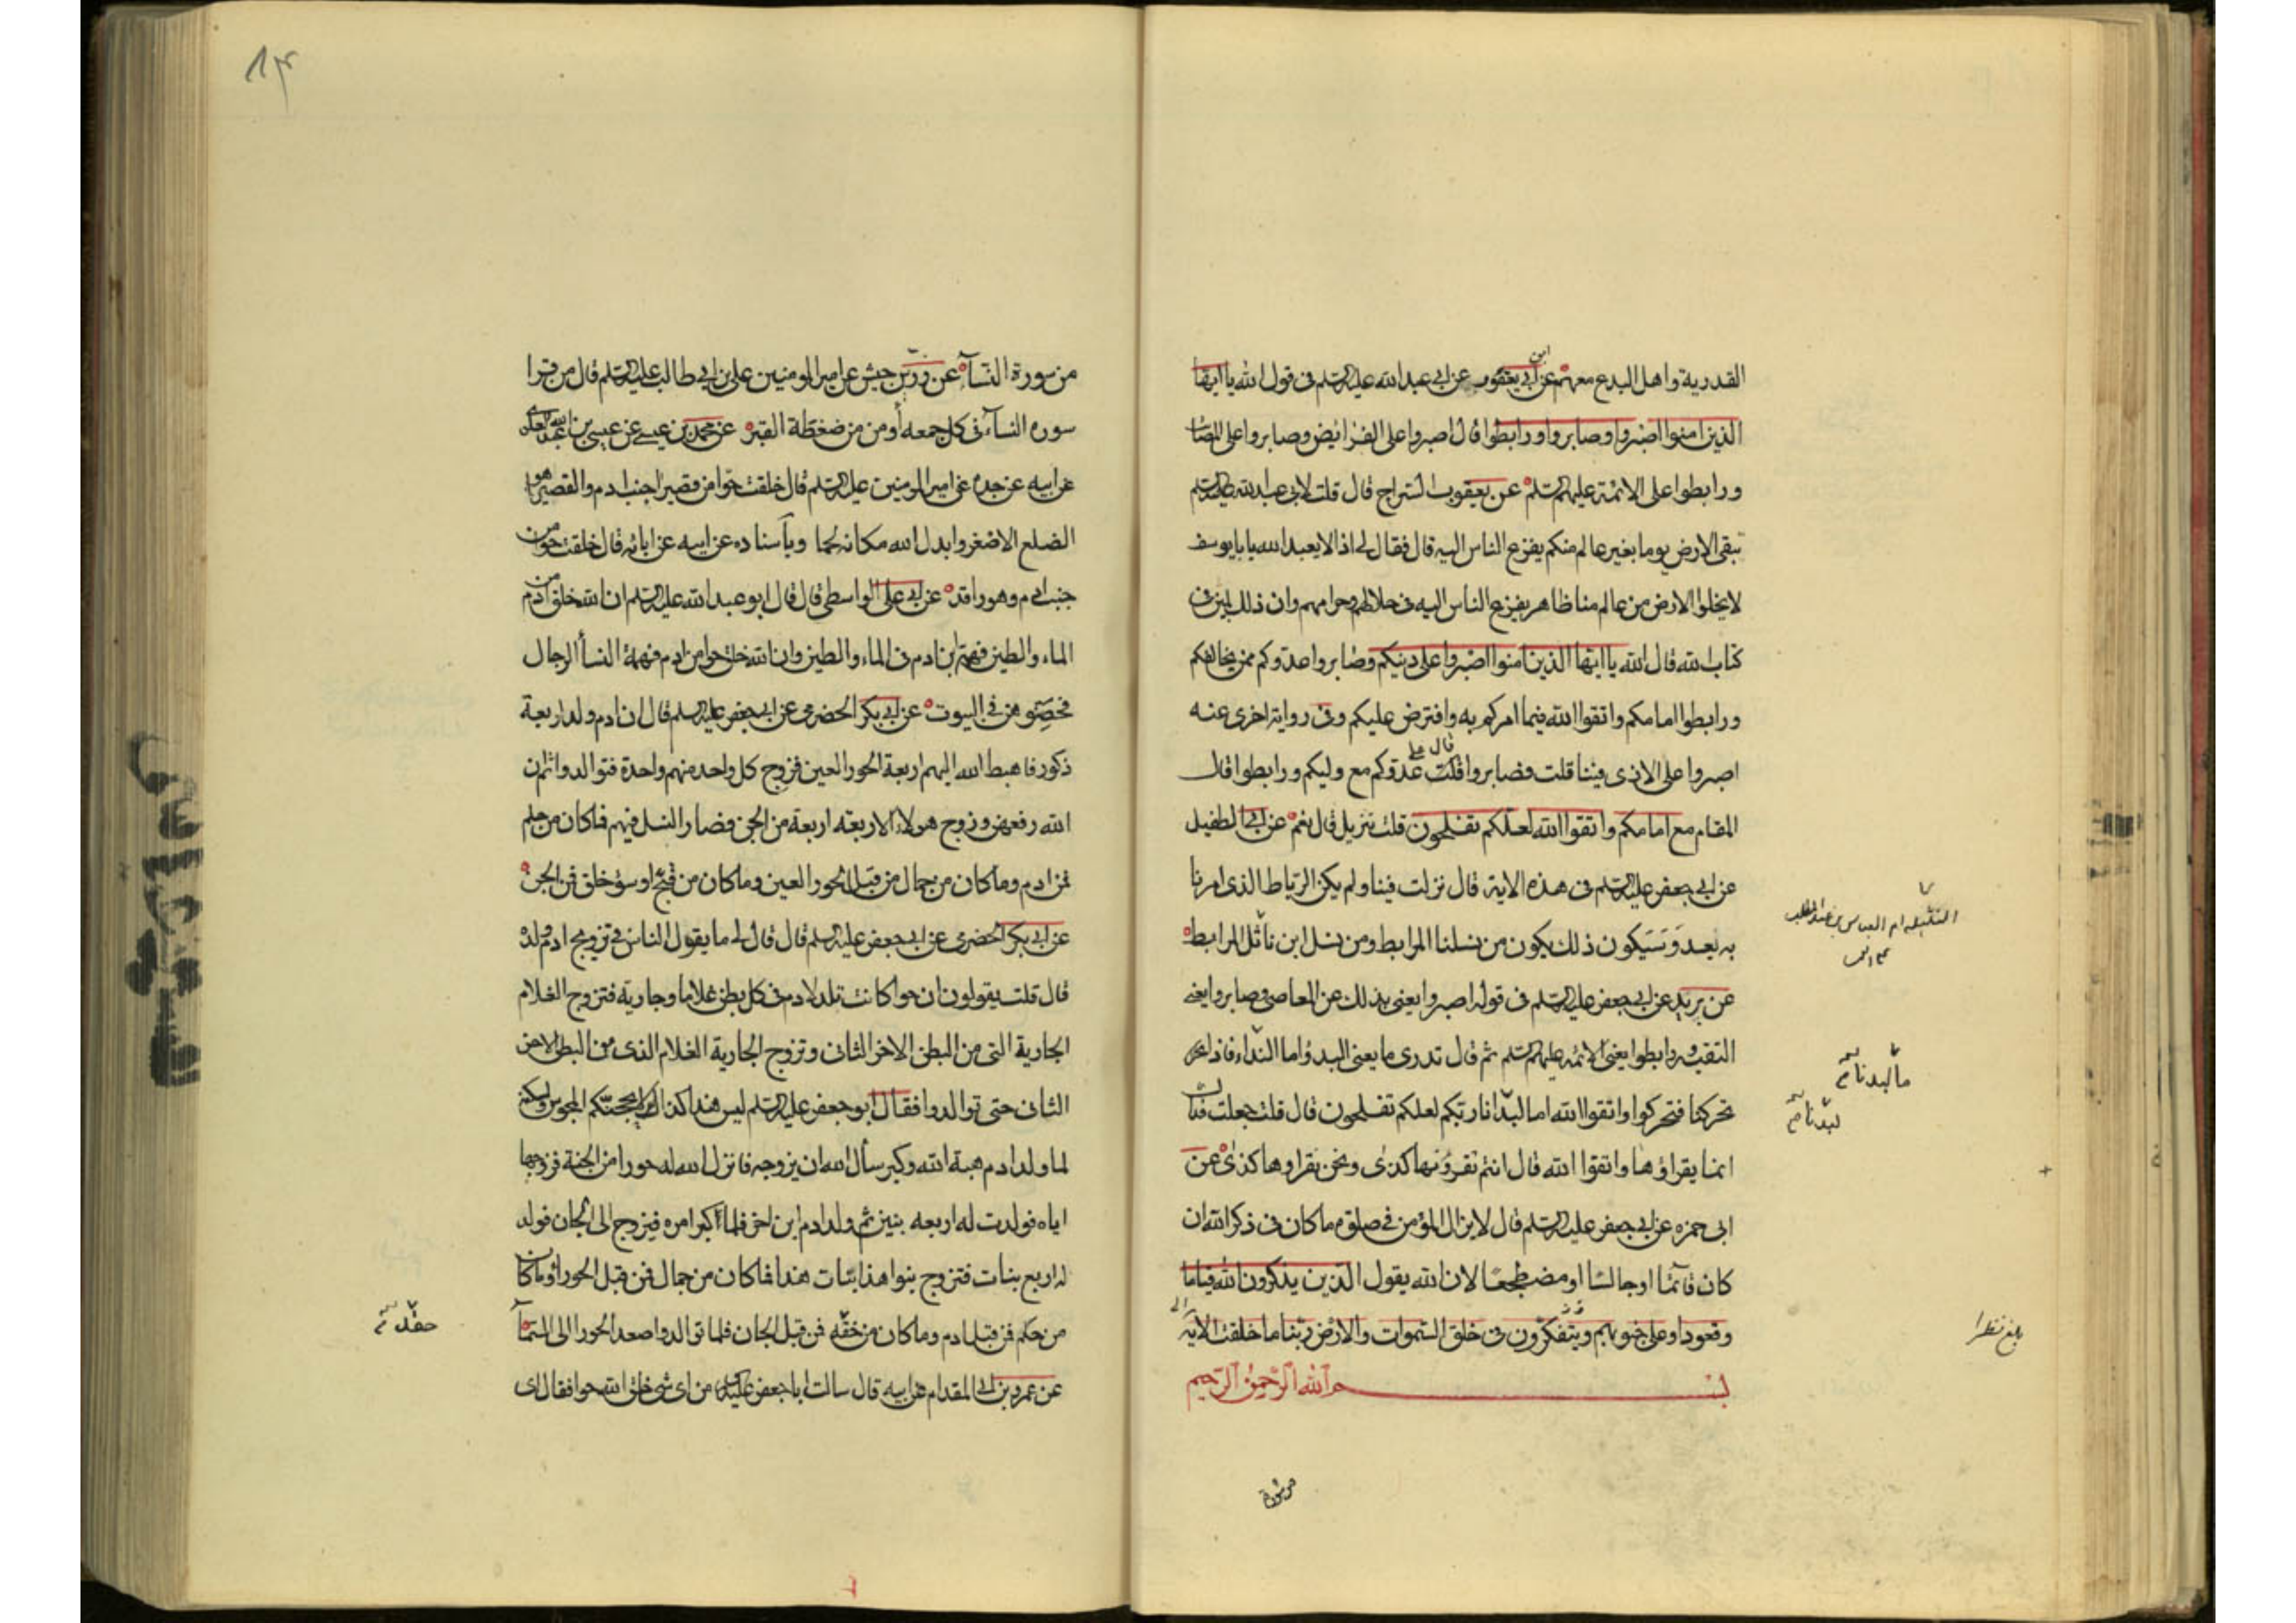 القدرية واهل البدع معهم عن ابن ابي يعفور عن ابي عبد الله عليه السلم فى قول الله يا ايها
الذين امنوا اصبروا وصابروا ورابطوا قال اصبروا على الفرايض وصابروا على المصائب
ورابطوا على الائمة عليهم السلم عن يعقوب السراج قال قلت لابى عبد الله عليه السلم
تبقى الارض يوما بغير عالم منكم يفزع الناس اليه قال فقال لى اذا لا يعبد الله يا با يوسف
لا يخلوا الارض من عالم منا ظاهر يفزع الناس اليه فى حلالهم وحرامهم وان ذلك لمبين فى
كتاب الله قال الله يا ايها الذين امنوا اصبروا على دينكم وصابروا عدوكم ممن يخالفكم
ورابطوا امامكم واتقوا الله فيما امركم به وافترض عليكم وفى رواية اخرى عنه
اصبروا على الاذى فينا قلت فصابروا قال على عدوكم مع وليكم ورابطوا قال
المقام مع امامكم واتقوا الله لعلكم تفلحون قلت تنزيل قال نعم عن ابى الطفيل
عن ابى جعفر عليه السلم فى هذه الاية قال نزلت فينا ولم يكن الرباط الذى امرنا
به بعد وسيكون ذلك يكون من نسلنا المرابط ومن نسل ابن ناثل المرابط
عن بريد عن ابى جعفر عليه السلم فى قوله اصبروا يعنى بذلك عن المعاصى وصابروا يعنى
التقية ورابطوا يعنى الائمة عليهم السلم ثم قال تدرى ما يعنى البدوا ما البدنا فاذا
تحركنا فتحركوا واتقوا الله اما لبدنا ربكم لعلكم تفلحون قال قلت جعلت فداك
انما يقراوها واتقوا الله قال انتم تقرؤنها كذى ونحن نقراوها كذى عن
ابى حمزه عن ابى جعفر عليه السلم قال لا يزال المؤمن فى صلوة ما كان فى ذكر الله ان
كان قائما او جالسا او مضطجعا لان الله يقول الذين يذكرون الله قياما
وقعودا وعلى جنوبهم ويتفكرون فى خلق السموات والارض ربنا ما خلقت الاية
بسم الله الرحمن الرحيم
من سورة
ما لبدنا
لبدنا
بلغ نظرا
من سورة النساء عن زر بن حبيش عن امير المومنين على بن ابى طالب عليه السلم قال من قرا
سوره النساء فى كل جمعه أومن من ضغطة القبر عن محمد بن عيسى عن عيسى بن عبد الله العلوى
عن ابيه عن جده عن امير المومنين عليه السلم قال خلقت حوا من قصير اجنب ادم والقصير هو
الضلع الاصغر وابدل الله مكانه لحما وباسناده عن ابيه عن ابائه قال خلقت حوا من
جنب ادم وهو راقد عن ابى على الواسطى قال قال ابو عبد الله عليه السلم ان الله خلق ادم من
الماء والطين فهمة ابن ادم فى الماء والطين وان الله خلق حوا من ادم فهمة النسأ الرجال
فحصنوهن فى البيوت عن ابى بكر الحضرمى عن ابى جعفر عليه السلم قال ان ادم ولد اربعة
ذكور فاهبط الله اليهم اربعة الحور العين فزوج كل واحد منهم واحدة فتوالدوا ثم ان
الله رفعهن وزوج هولاء الاربعه اربعة من الجن فصار النسل فيهم فما كان من حلم
فمن ادم وما كان من جمال من قبل الحور العين وما كان من قبح او سوء خلق فمن الجن
عن ابى بكر الحضرمى عن ابى جعفر عليه السلم قال قال لى ما يقول الناس فى تزويج ادم ولده
قال قلت يقولون ان حوا كانت تلد لادم فى كل بطن غلاما وجارية فتزوج الغلام
الجارية التى من البطن الاخر الثانى وتزوج الجارية الغلام الذى من البطن الاخر
الثانى حتى توالدوا فقال ابو جعفر عليه السلم ليس هذا كذاك يحجكم المجوس ولكنه
لما ولد ادم هبة الله وكبر سأل الله ان يزوجه فانزل الله له حورا من الجنة فزوجها
اياه فولدت له اربعه بنين ثم ولد ادم ابن اخر فلما كبر امره فتزوج الى الجان فولد
له اربع بنات فتزوج بنوا هذا بنات هذا فما كان من جمال فمن قبل الحورا وما كان
من حكم فمن قبل ادم وما كان من خفة فمن قبل الجان فلما توالدوا صعد الحورا الى السمآ
عن عمرو بن ابى المقدام عن ابيه قال سالت ابا جعفر عليه السلم من اى شى خلق الله حوا فقال اى